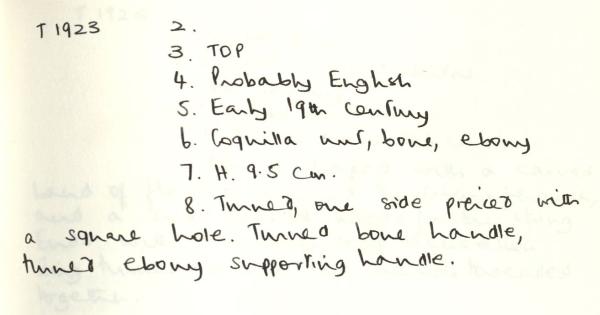 T 1923 2.
3. TOP
4. Probably English
5. Early 19th Century
6. Coquilla nut, bone, ebony
7. H. 9.5 cm.
8. Turned, one side preiced with
a square hole. Turned bone handle,
turned ebony supporting handle.